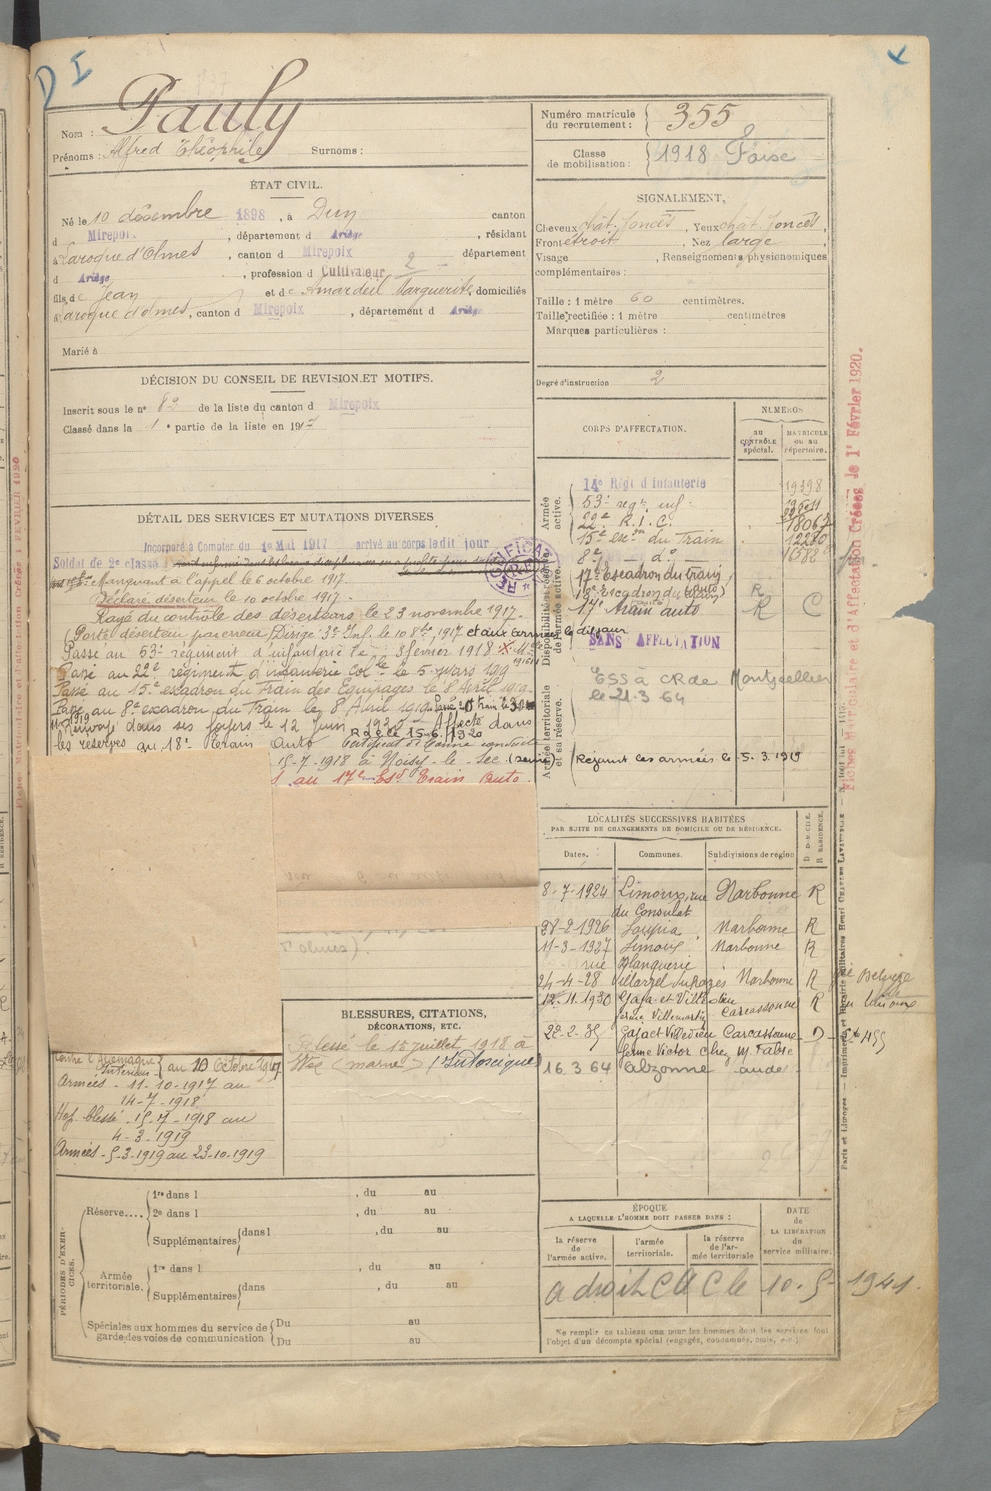 D I
Nom : Pauly
Prénoms : Alfred Théophile Surnoms :
Numéro matricule du recrutement : 355
Classe de mobilisation : 1918 Foix
ÉTAT CIVIL.
Né le 10 décembre 1898, à Dun canton
d Mirepoix, département d Ariège, résidant
à Laroque d'Olmes, canton d Mirepoix département
d Ariège, profession d Cultivateur 2
fils de Jean et de Amardeil Marguerite, domiciliés
à Laroque d'olmes, canton d Mirepoix, département d Ariège
Marié à
SIGNALEMENT,
Cheveux chat. foncés, Yeux chat. foncés,
Front étroit, Nez large,
Visage , Renseignements physionomiques
complémentaires :
Taille : 1 mètre 60 centimètres.
Taille rectifiée : 1 mètre centimètres
Marques particulières :
Degré d'instruction 2
DÉCISION DU CONSEIL DE REVISION ET MOTIFS.
Inscrit sous le nº 82 de la liste du canton d Mirepoix
Classé dans la 1e partie de la liste en 1917
CORPS D'AFFECTATION.
NUMÉROS
au contrôle spécial.
matricule ou au répertoire.
Armée active.
14e Régt d'Infanterie 19398
53e regt inf.
22e R.I.C. 18067
15e escon du Train 12270
8e - do - 1582
Disponibilité et réserve de l'armée active.
17e Escadron du train R
17e train auto R C
SANS AFFECTATION
Armée territoriale et sa réserve.
ESS à CR de Montpellier
le 21.3.64
Rejoint les armées le 5.3.1919
DÉTAIL DES SERVICES ET MUTATIONS DIVERSES
Incorporé à Compter du 1er Mai 1917 arrivé au corps ledit jour
Soldat de 2e classe
Manquant à l'appel le 6 octobre 1917.
Déclaré déserteur le 10 octobre 1917.
Rayé du contrôle des déserteurs le 23 novembre 1917.
(Porté déserteur par erreur) Dirigé 3e Inf. le 10 8bre 1917 et aux armées le dit jour
Passé au 53e régiment d'infanterie le 3 février 1918
Passé au 22e régiment d'infanterie Colle le 5 mars 1919
Passé au 15e escadron du Train des Equipages le 8 Avril 1919.
Passé au 8e escadron du Train le 8 Avril 1919.
Renvoyé dans ses foyers le 12 Juin 1920 Affecté dans
R de C le 15-6-1920
les réserves au 18e Train Auto
15-7-1918 à Noisy-le-Sec (Seine)
au 17e Esd Train Auto.
LOCALITÉS SUCCESSIVES HABITÉES
PAR SUITE DE CHANGEMENTS DE DOMICILE OU DE RÉSIDENCE.
Dates. Communes. Subdivisions de région D. DOMICILE. R. RÉSIDENCE.
8-7-1924 Limoux, rue du Consulat Narbonne R
28-2-1926 Loupia Narbonne R
11-3-1927 Limoux rue Blanquerie Narbonne R
24-4-28 Villarzel du Razès Narbonne R
12.11.1930 Gaja et Villedieu Carcassonne R
22-2-35 Gaja et Villedieu Carcassonne D
ferme Victor chez M. Fabre
16 3 64 Alzonne aude
BLESSURES, CITATIONS, DÉCORATIONS, ETC.
Blessé le 15 juillet 1918 à
(marne)
Contre l'Allemagne
Intérieur au 10 Octobre 1917
Armées - 11-10-1917 au
14-7-1918
Hop. blessé - 15-7-1918 au
4-3-1919
Armées - 5-3-1919 au 23-10-1919
PÉRIODES D'EXERCICES.
Réserve....
1re dans l , du au
2e dans l , du au
Supplémentaires dans l , du au
Armée territoriale.
1re dans l , du au
Supplémentaires dans , du au
Spéciales aux hommes du service de garde des voies de communication
Du au
Du au
ÉPOQUE
A LAQUELLE L'HOMME DOIT PASSER DANS :
la réserve de l'armée active.
l'armée territoriale.
la réserve de l'armée territoriale
DATE de LA LIBÉRATION du service militaire.
a droit C A C le 10-5-1941.
Ne remplir ce tableau que pour les hommes dont les services font
l'objet d'un décompte spécial (engagés, condamnés, omis, etc.)
Fiches Matriculaire et d'Affectation Créées le 1er Février 1920.
Paris et Limoges — Imprimerie et librairie militaires Henri Charles-Lavauzelle